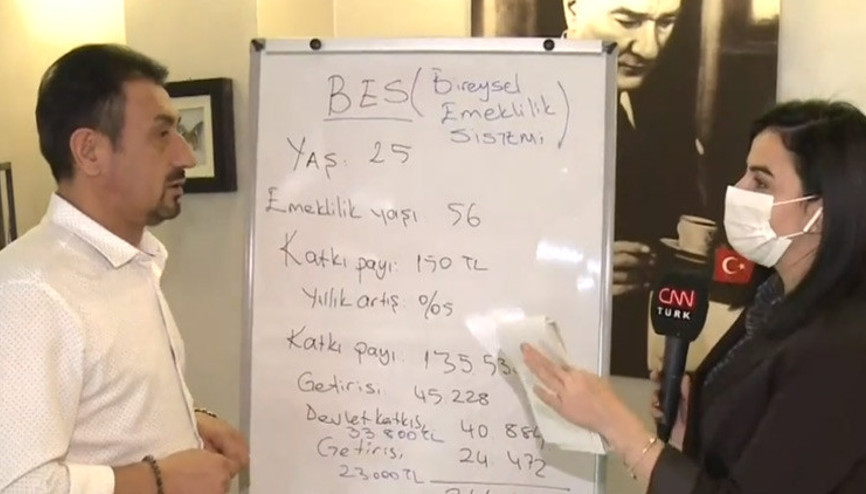 BES (Bireysel
Emeklilik
SİSTEMİ)
YAŞ: 25
Emeklilik yaşı 56
Katkı payı: 150 TL
Yıllık artış: %05
Katkı payı: 135.53
Getirisi 45.228
Devlet katkısı 40.884
33 800 TL
Getirisi 24.472
23.000TL
CNN
TURK